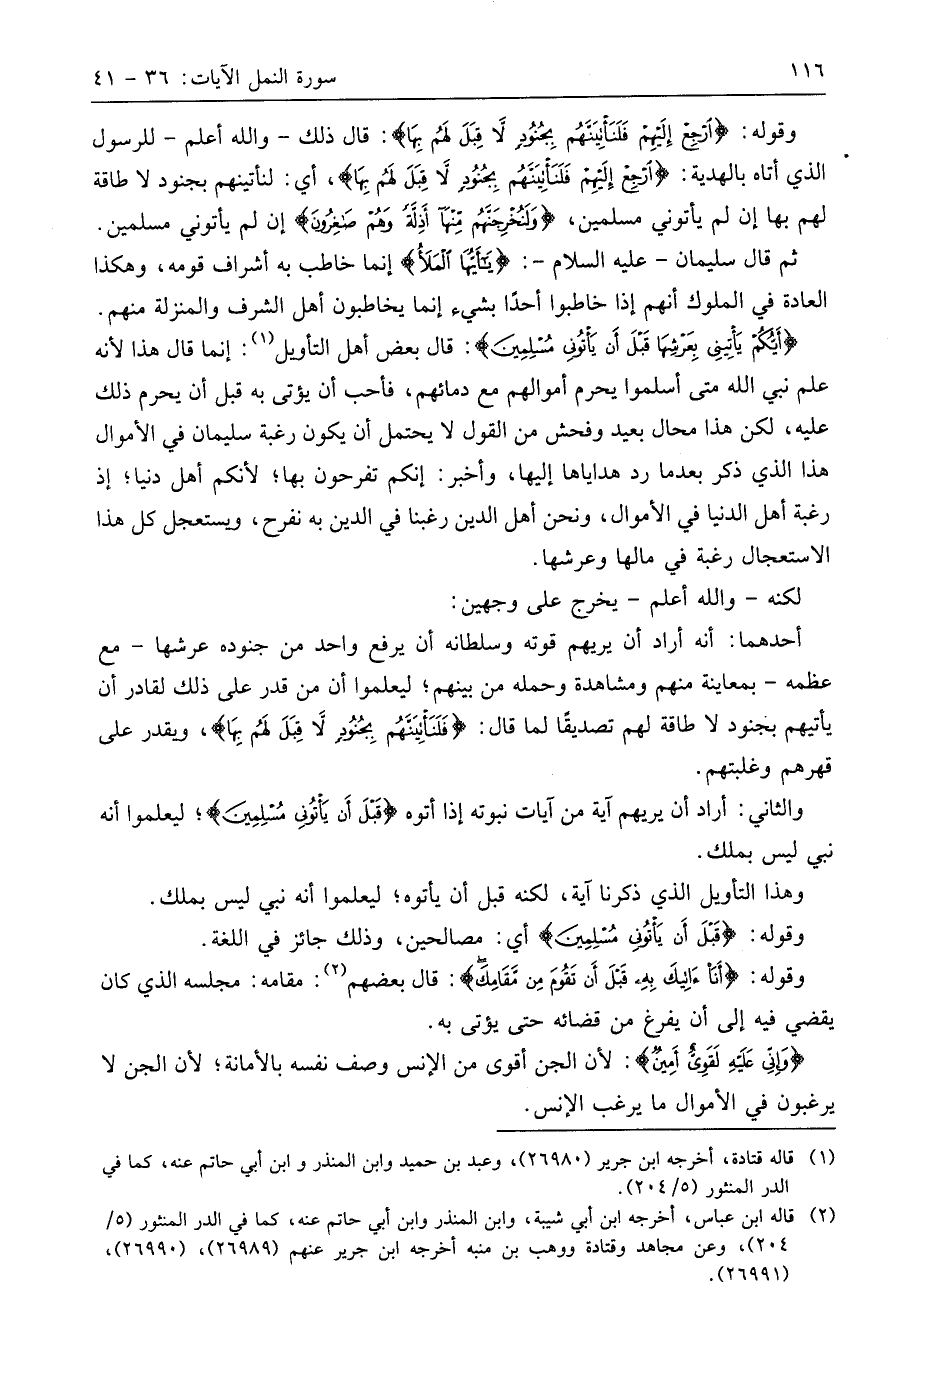 ١١٦
سورة النمل الآيات: ٣٦ - ٤١
وقوله: ﴿ٱرْجِعْ إِلَيْهِمْ فَلَنَأْتِيَنَّهُم بِجُنُودٍ لَّا قِبَلَ لَهُم بِهَا﴾: قال ذلك - والله أعلم - للرسول
الذي أتاه بالهدية: ﴿ٱرْجِعْ إِلَيْهِمْ فَلَنَأْتِيَنَّهُم بِجُنُودٍ لَّا قِبَلَ لَهُم بِهَا﴾، أي: لنأتينهم بجنود لا طاقة
لهم بها إن لم يأتوني مسلمين، ﴿وَلَنُخْرِجَنَّهُم مِّنْهَآ أَذِلَّةً وَهُمْ صَٰغِرُونَ﴾ إن لم يأتوني مسلمين.
ثم قال سليمان - عليه السلام -: ﴿يَٰٓأَيُّهَا ٱلْمَلَؤُا۟﴾ إنما خاطب به أشراف قومه، وهكذا
العادة في الملوك أنهم إذا خاطبوا أحدًا بشيء إنما يخاطبون أهل الشرف والمنزلة منهم.
﴿أَيُّكُمْ يَأْتِينِى بِعَرْشِهَا قَبْلَ أَن يَأْتُونِى مُسْلِمِينَ﴾: قال بعض أهل التأويل(١): إنما قال هذا لأنه
علم نبي الله متى أسلموا يحرم أموالهم مع دمائهم، فأحب أن يؤتى به قبل أن يحرم ذلك
عليه، لكن هذا محال بعيد وفحش من القول لا يحتمل أن يكون رغبة سليمان في الأموال
هذا الذي ذكر بعدما رد هداياها إليها، وأخبر: إنكم تفرحون بها؛ لأنكم أهل دنيا؛ إذ
رغبة أهل الدنيا في الأموال، ونحن أهل الدين رغبنا في الدين به نفرح، ويستعجل كل هذا
الاستعجال رغبة في مالها وعرشها.
لكنه - والله أعلم - يخرج على وجهين:
أحدهما: أنه أراد أن يريهم قوته وسلطانه أن يرفع واحد من جنوده عرشها - مع
عظمه - بمعاينة منهم ومشاهدة وحمله من بينهم؛ ليعلموا أن من قدر على ذلك لقادر أن
يأتيهم بجنود لا طاقة لهم تصديقًا لما قال: ﴿فَلَنَأْتِيَنَّهُم بِجُنُودٍ لَّا قِبَلَ لَهُم بِهَا﴾، ويقدر على
قهرهم وغلبتهم.
والثاني: أراد أن يريهم آية من آيات نبوته إذا أتوه ﴿قَبْلَ أَن يَأْتُونِى مُسْلِمِينَ﴾؛ ليعلموا أنه
نبي ليس بملك.
وهذا التأويل الذي ذكرنا آية، لكنه قبل أن يأتوه؛ ليعلموا أنه نبي ليس بملك.
وقوله: ﴿قَبْلَ أَن يَأْتُونِى مُسْلِمِينَ﴾ أي: مصالحين، وذلك جائز في اللغة.
وقوله: ﴿أَنَا۠ ءَاتِيكَ بِهِۦ قَبْلَ أَن تَقُومَ مِن مَّقَامِكَ﴾: قال بعضهم(٢): مقامه: مجلسه الذي كان
يقضي فيه إلى أن يفرغ من قضائه حتى يؤتى به.
﴿وَإِنِّى عَلَيْهِ لَقَوِىٌّ أَمِينٌ﴾: لأن الجن أقوى من الإنس وصف نفسه بالأمانة؛ لأن الجن لا
يرغبون في الأموال ما يرغب الإنس.
(١) قاله قتادة، أخرجه ابن جرير (٢٦٩٨٠)، وعبد بن حميد وابن المنذر و ابن أبي حاتم عنه، كما في
الدر المنثور (٥/ ٢٠٤).
(٢) قاله ابن عباس، أخرجه ابن أبي شيبة، وابن المنذر وابن أبي حاتم عنه، كما في الدر المنثور (٥/
٢٠٤)، وعن مجاهد وقتادة ووهب بن منبه أخرجه ابن جرير عنهم (٢٦٩٨٩)، (٢٦٩٩٠)،
(٢٦٩٩١).